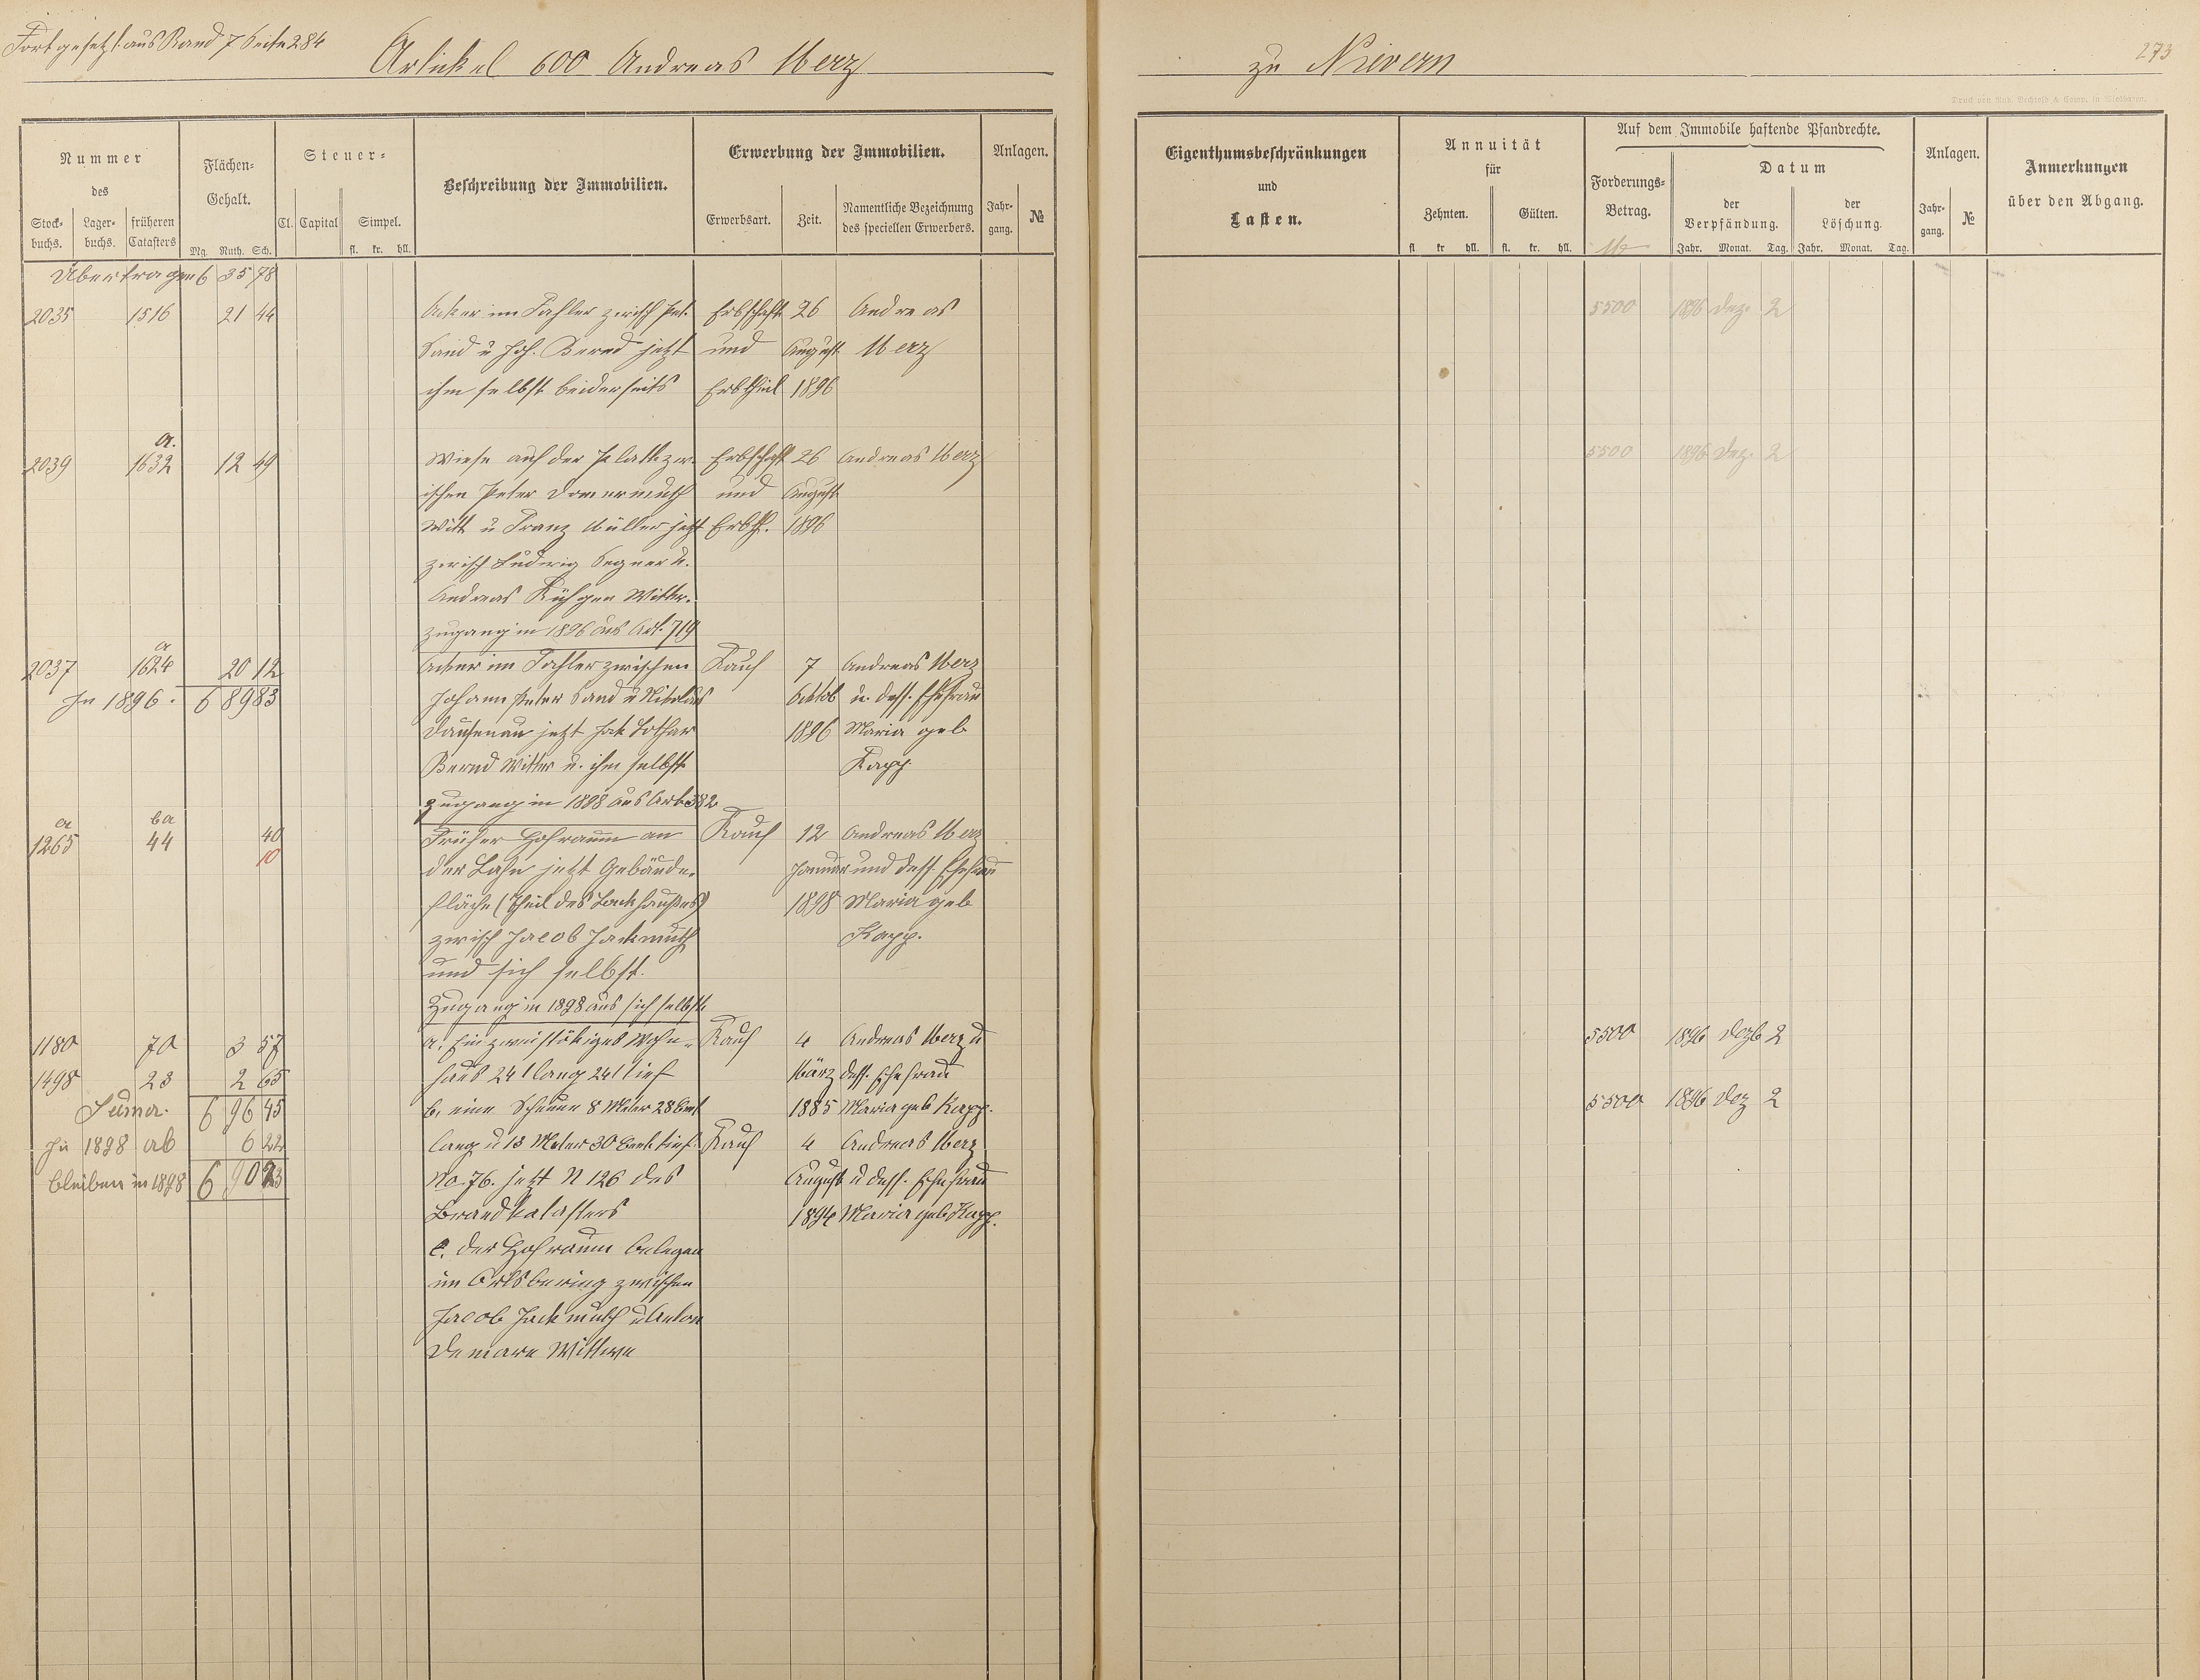 Fortgesetzt aus Band 7 Seite 284
Artickel 600 Andreas Merz
zu Nievern
273
Druck von Rud. Bechtold & Comp. in Wiesbaden.
Nummer
des
Stock-buchs. Lager-buchs. früheren Catasters
Flächen-Gehalt.
Mg. Ruth. Sch.
Steuer-
Cl. Capital Simpel.
fl. kr. hll.
Beschreibung der Immobilien.
Erwerbung der Immobilien.
Erwerbsart. Zeit. Namentliche Bezeichnung des speciellen Erwerbers.
Anlagen.
Jahr-gang. №
Eigenthumsbeschränkungen
und
Lasten.
Annuität
für
Zehnten. Gülten.
fl kr hll. fl. kr. hll.
Auf dem Immobile haftende Pfandrechte.
Forderungs-Betrag.
Datum
der Verpfändung. der Löschung.
Jahr. Monat. Tag. Jahr. Monat. Tag.
Anlagen.
Jahr-gang. №
Anmerkungen
über den Abgang.
Übertragen 6 35 78
2035 1516 21 44 Acker im Fahler zwisch Pet. Erbschaft 26 Andreas 5500 1896 Dez. 2
Sand u Joh. Bernd jetzt und August Merz
ihm selbst beiderseits Erbtheil 1896
a.
2039 1632 12 49 Wiese auf der Platte zw- Erbschaft 26 Andreas Merz 5500 1896 Dez. 2
ischen Peter Domermuth und August
Witt u Franz Müller jetzt Erbth. 1896
zwisch Ludwig Segner u.
Andreas Wittw.
Zugang in 1896 aus Art. 719
a
2037 1624 20 12 Acker im Fahler zwischen Kauf 7 Andreas Merz
In 1896. 6 89 83 Johann Peter Sand u Nikolaus Octob u. dess. Ehefrau
Dausenau jetzt Jak Lothar 1896 Maria geb
Bernd Wittw u. ihm selbst Kapp
Zugang in 1898 aus Art 382
a ba
1265 44 40 Früher Hofraum an Kauf 12 Andreas Merz
10 der Lahn jetzt Gebäude- Januar und dess. Ehefrau
fläche (Theil des Backhauses) 1898 Maria geb
zwisch Jacob Jackmuth Kapp.
und sich selbst.
Zugang in 1898 aus sich selbst
1180 70 3 57 a. Ein zweistökiges Wohn- Kauf 4 Andreas Merz u 5500 1896 Dezb 2
1498 23 2 65 haus 24' lang 24' tief März dess. Ehefrau
Suma. 6 96 45 b. eine Scheuer 8 Meter 28 Cent 1885 Maria geb Kapp. 5500 1896 Dez 2
In 1898 ab 6 22 lang u 13 Meter 30 Cent tief. Kauf 4 Andreas Merz
bleiben in 1898 6 90 23 No. 76. jetzt N 126 des August u dess. Ehefrau
Brandkatasters 1894 Maria geb Kapp.
c. der Hofraum belegen
im Ortsbering zwischen
Jacob Jackmuth u Anton
Wittwe